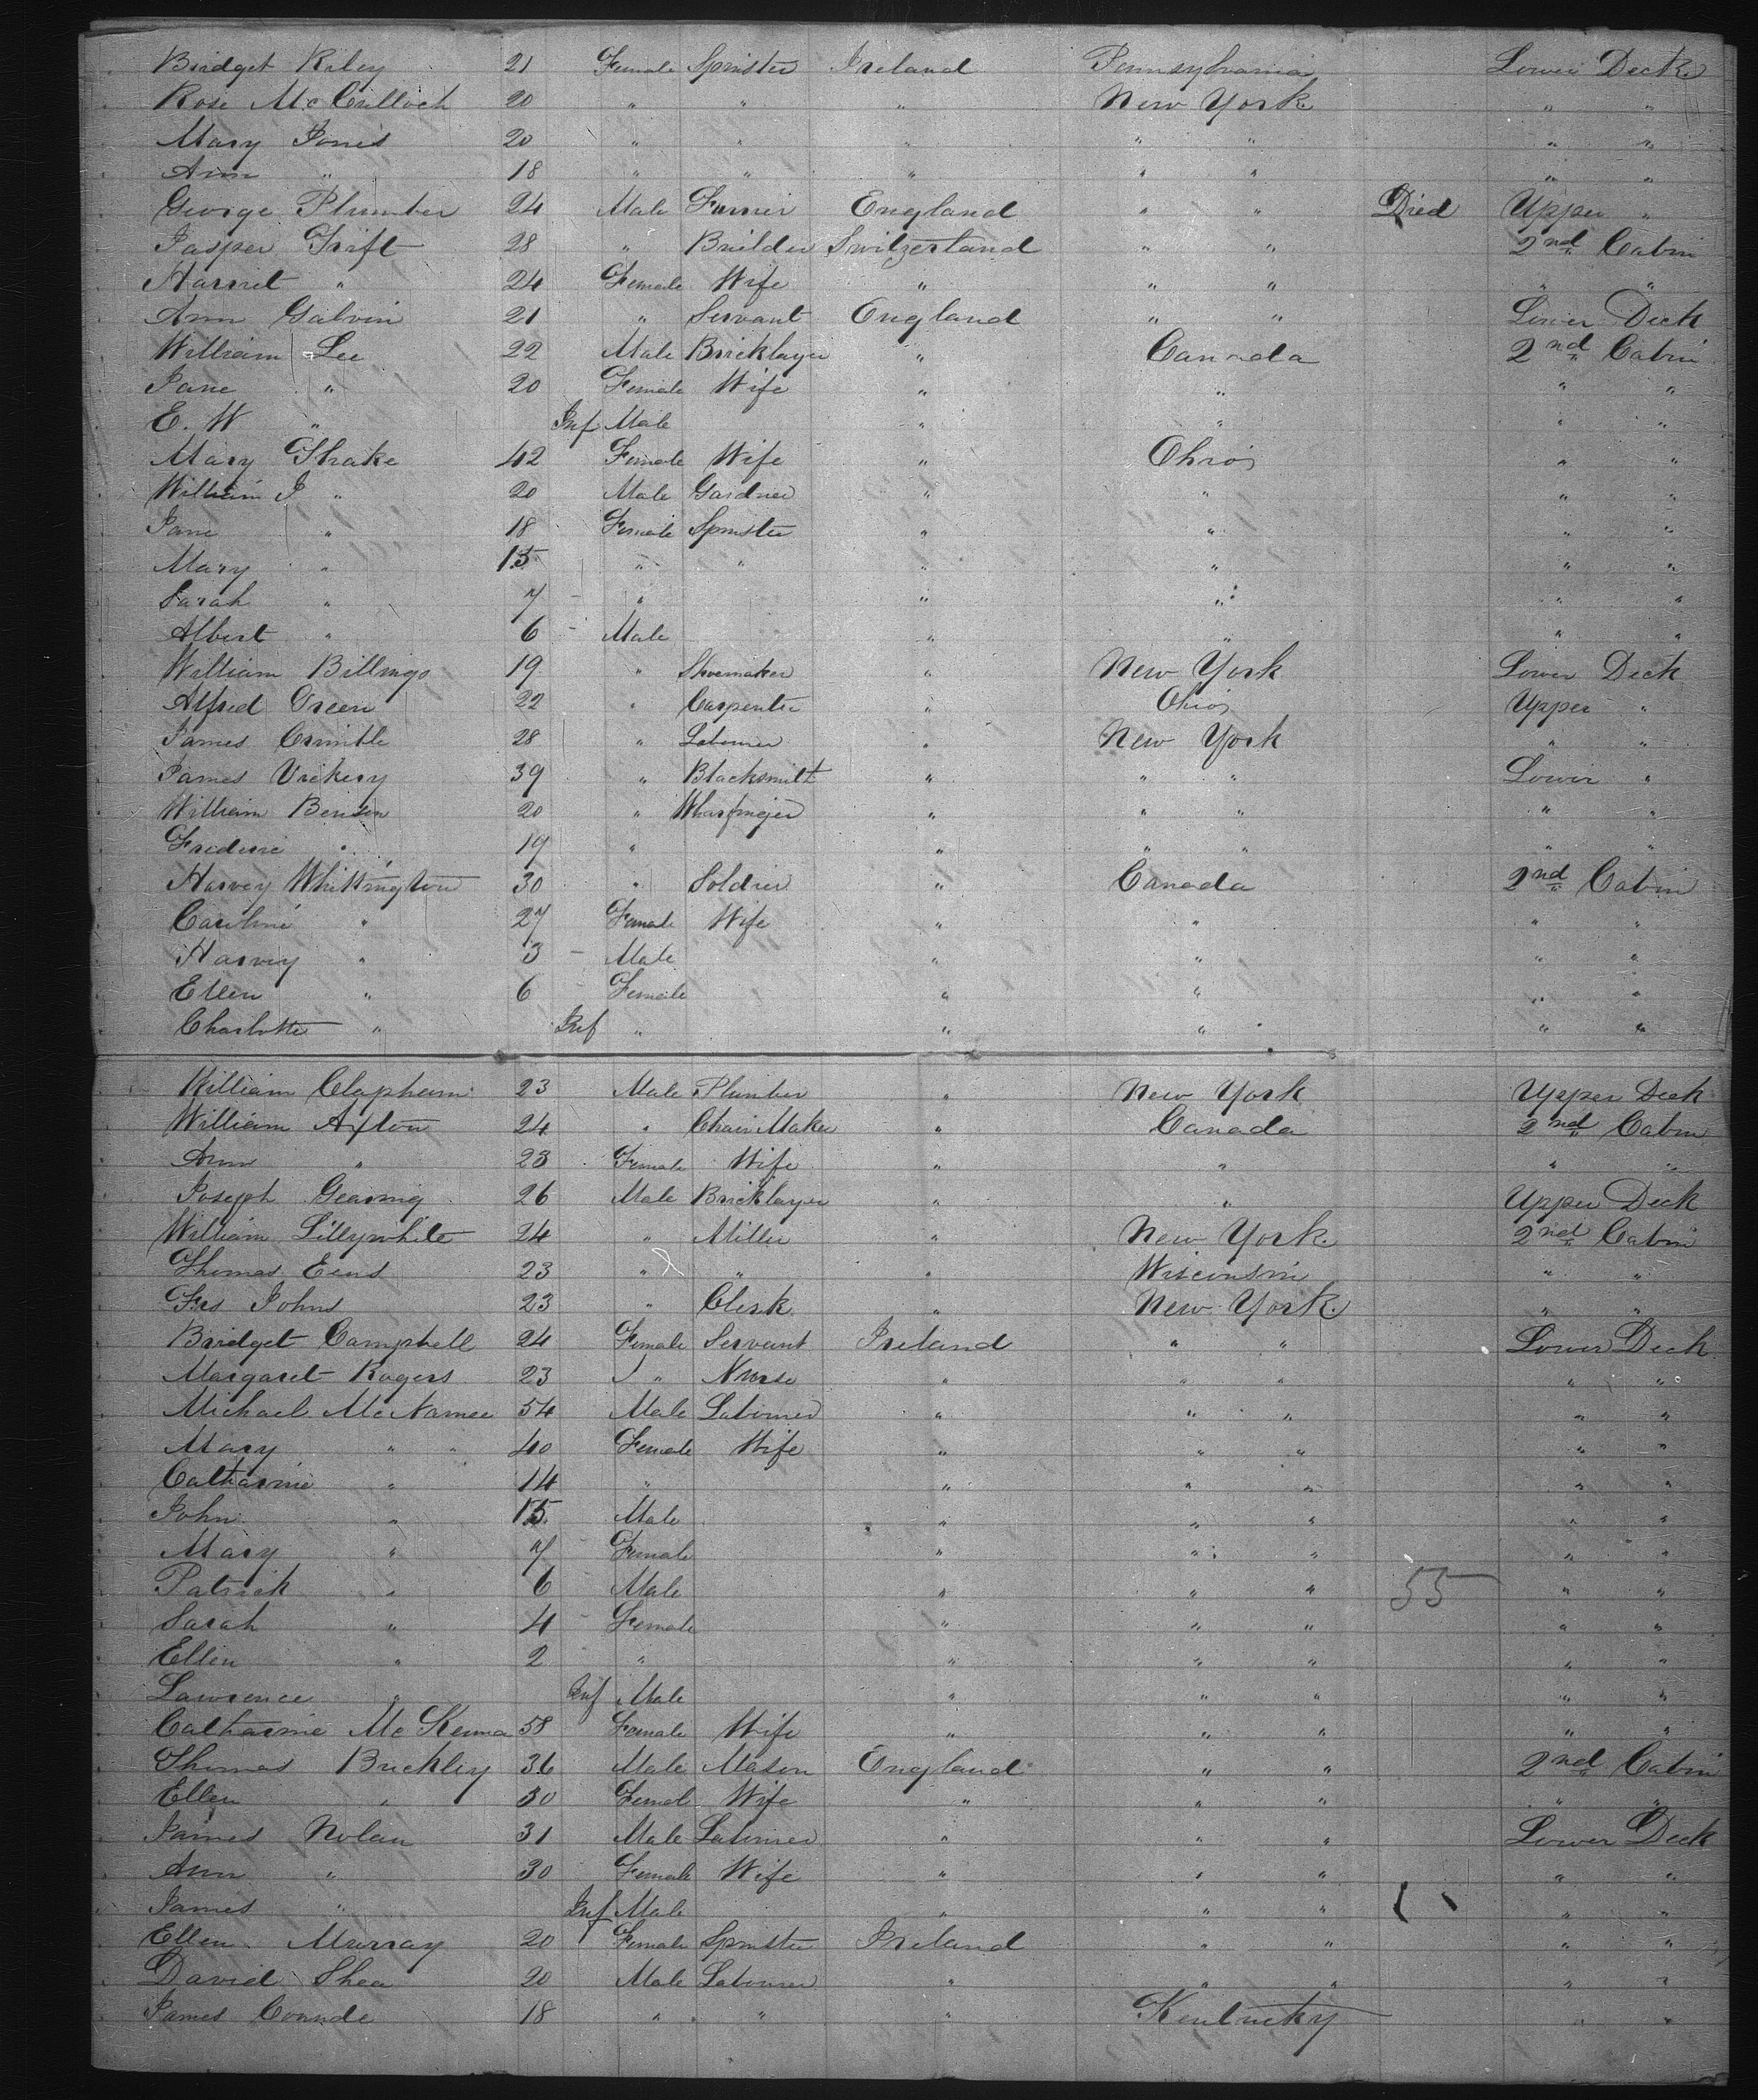 Bridget Riley 21 Female Spinster Ireland Pennsylvania Lower Deck
Rose McCulloch 20 " " " New York " "
Mary Jones 20 " " " " " " "
Ann " 18 " " " " " " "
George Plumber 24 Male Farrier England " " Died Upper "
Jasper Trift 28 " Builder Switzerland " " 2nd Cabin
Harriet " 24 Female Wife " " " " "
Ann Galvin 21 " Servant England " " Lower Deck
William Lee 22 Male Bricklayer " Canada 2nd Cabin
Jane " 20 Female Wife " " " "
E. W " Inf Male " " " "
Mary Shake 42 Female Wife " Ohio " "
William J " 20 Male Gardner " " " "
Jane " 18 Female Spinster " " " "
Mary " 15 " " " " " "
Sarah " 7 " " " " "
Albert " 6 Male " " " "
William Billings 19 " Shoemaker " New York Lower Deck
Alfred Green 22 " Carpenter " Ohio Upper "
James Crimble 28 " Labourer " New York " "
James Vickery 39 " Blacksmith " " " Lower "
William Benson 20 " Wharfinger " " " " "
Frederic " 19 " " " " " "
Harvey Whittington 30 " Soldier " Canada 2nd Cabin
Caroline " 27 Female Wife " " " "
Harvey " 3 Male " " " "
Ellen " 6 Female " " " "
Charlotte " Inf " " " " "
William Clapham 23 Male Plumber " New York Upper Deck
William Axton 24 " Chair Maker " Canada 2nd Cabin
Ann " 23 Female Wife " " " "
Joseph Gearing 26 Male Bricklayer " " Upper Deck
William Lillywhite 24 " Miller " New York 2nd Cabin
Thomas Eens 23 " " " Wisconsin " "
Frs Johns 23 " Clerk " New York " "
Bridget Campbell 24 Female Servant Ireland " " Lower Deck
Margaret Rogers 23 " Nurse " " " " "
Michael McNamee 54 Male Labourer " " " " "
Mary " " 40 Female Wife " " " " "
Catharine " 14 " " " " " "
John " 15 Male " " " " "
Mary " 7 Female " " " " "
Patrick " 6 Male " " " 55 " "
Sarah " 4 Female " " " " "
Ellen " 2 " " " " " "
Lawrence " Inf Male " " " " "
Catharine McKenna 58 Female Wife " " " " "
Thomas Buckley 36 Male Mason England " " 2nd Cabin
Ellen " 30 Femal Wife " " " " "
James Nolan 31 Male Labourer " " " Lower Deck
Ann " 30 Female Wife " " " " "
James " Inf Male " " " " "
Ellen Murray 20 Female Spinster Ireland " " " "
David Shea 20 Male Labourer " " " " "
James 18 " " " Kentucky " "